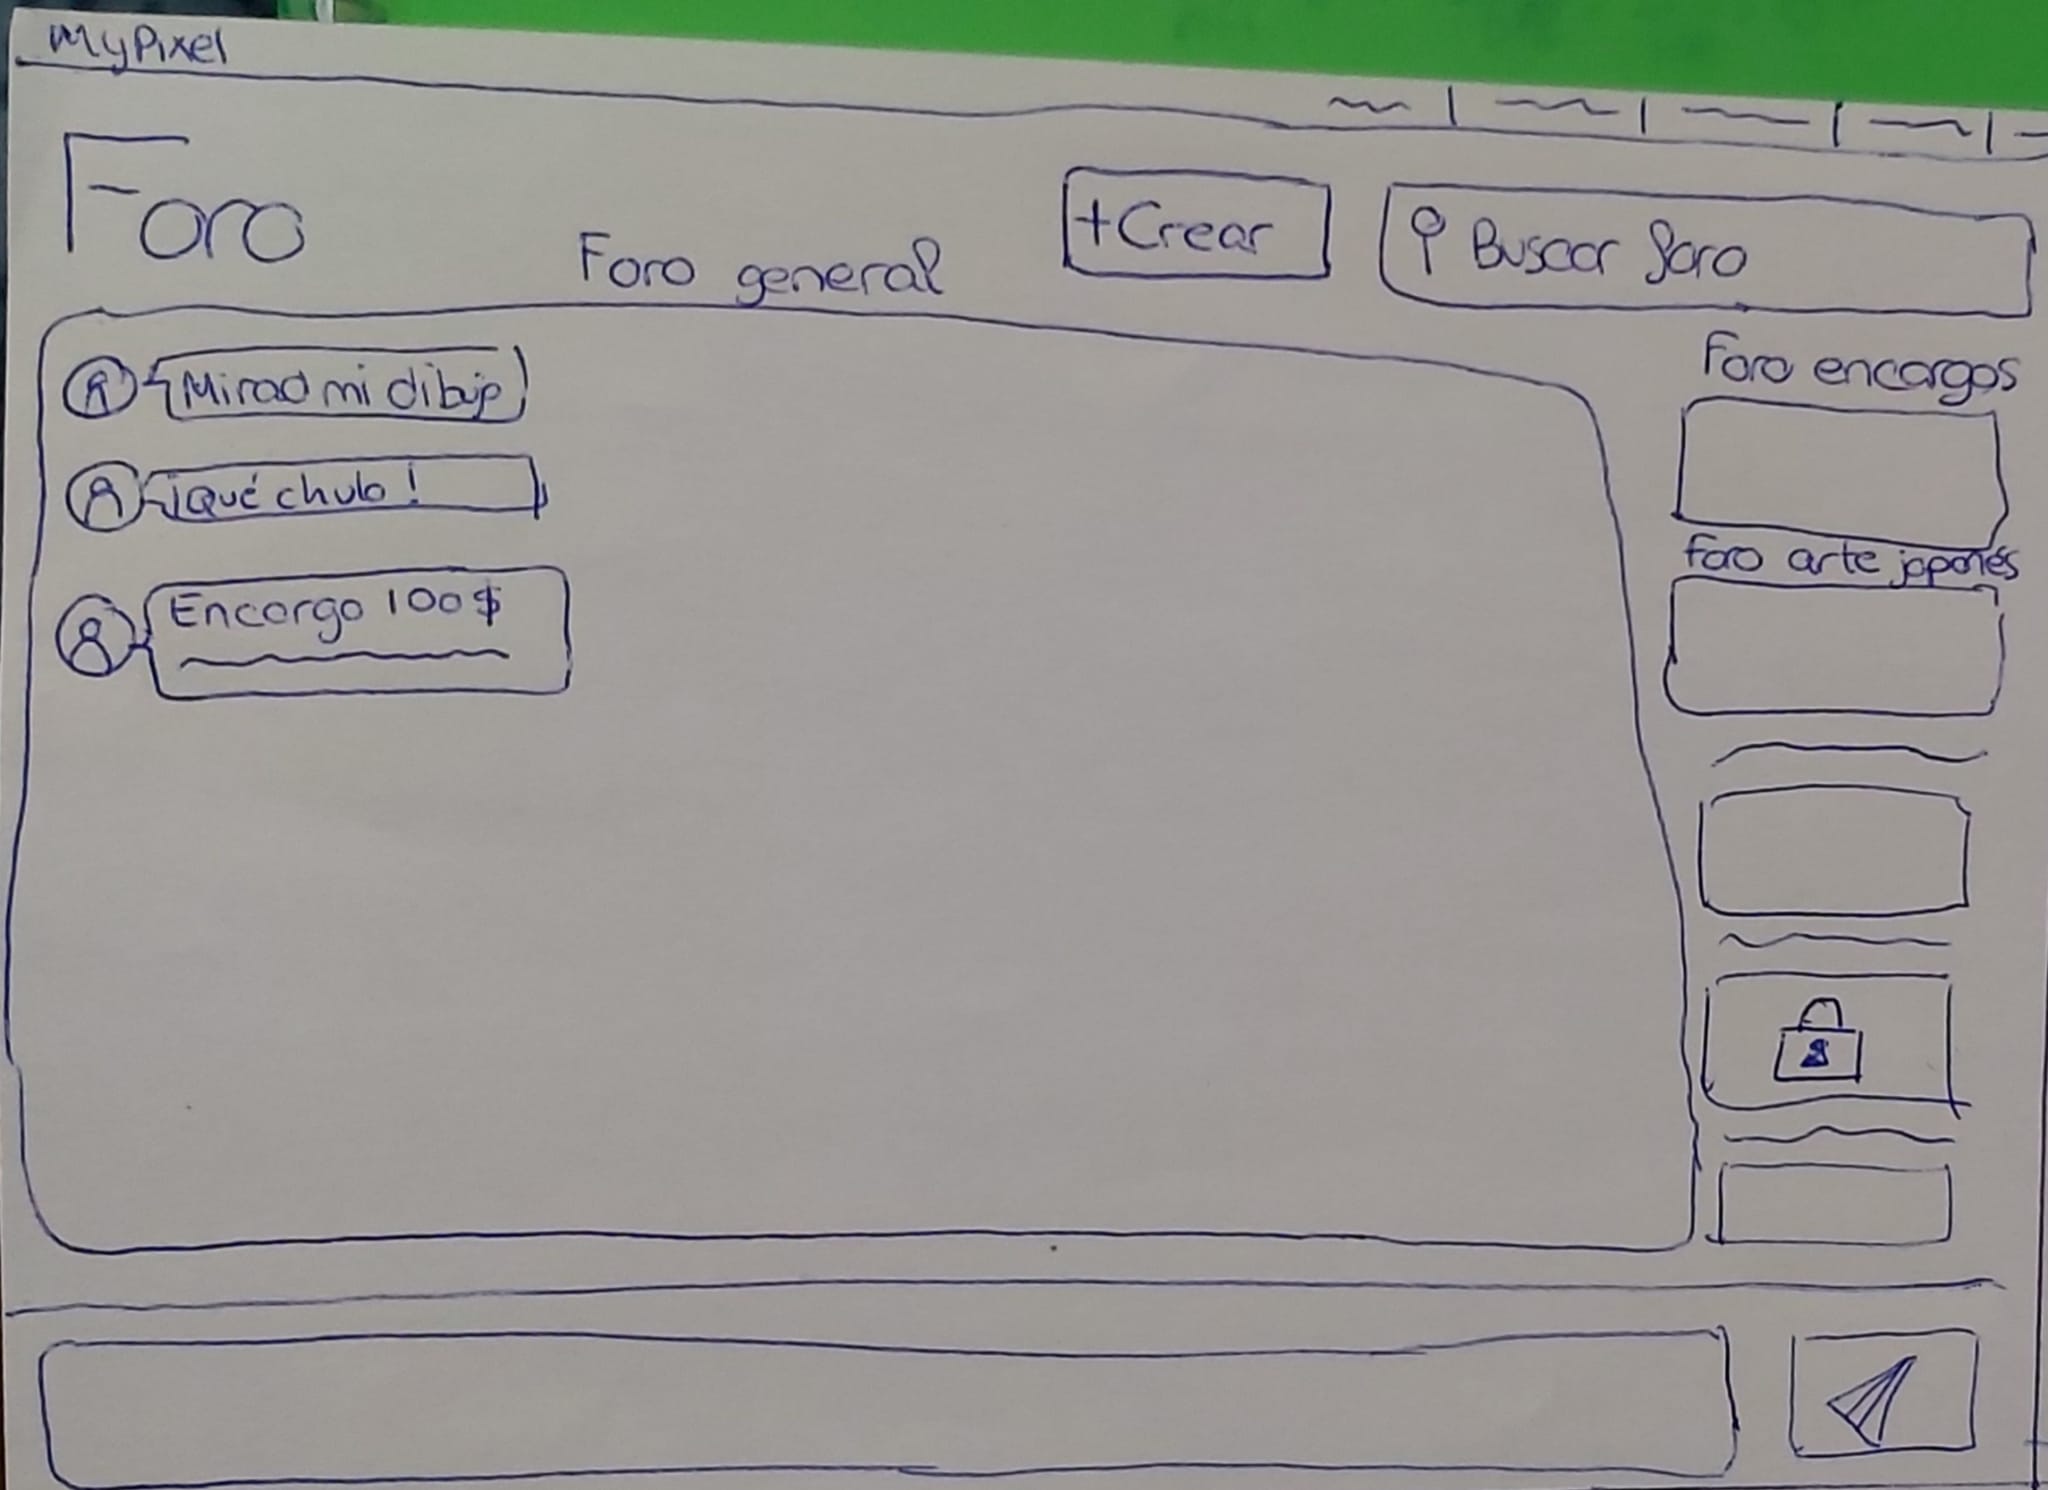 MyPixel
Foro
Foro general
+Crear
Buscar foro
Mirad mi dibujo
¡Qué chulo!
Encargo 100$
Foro encargos
Foro arte japonés